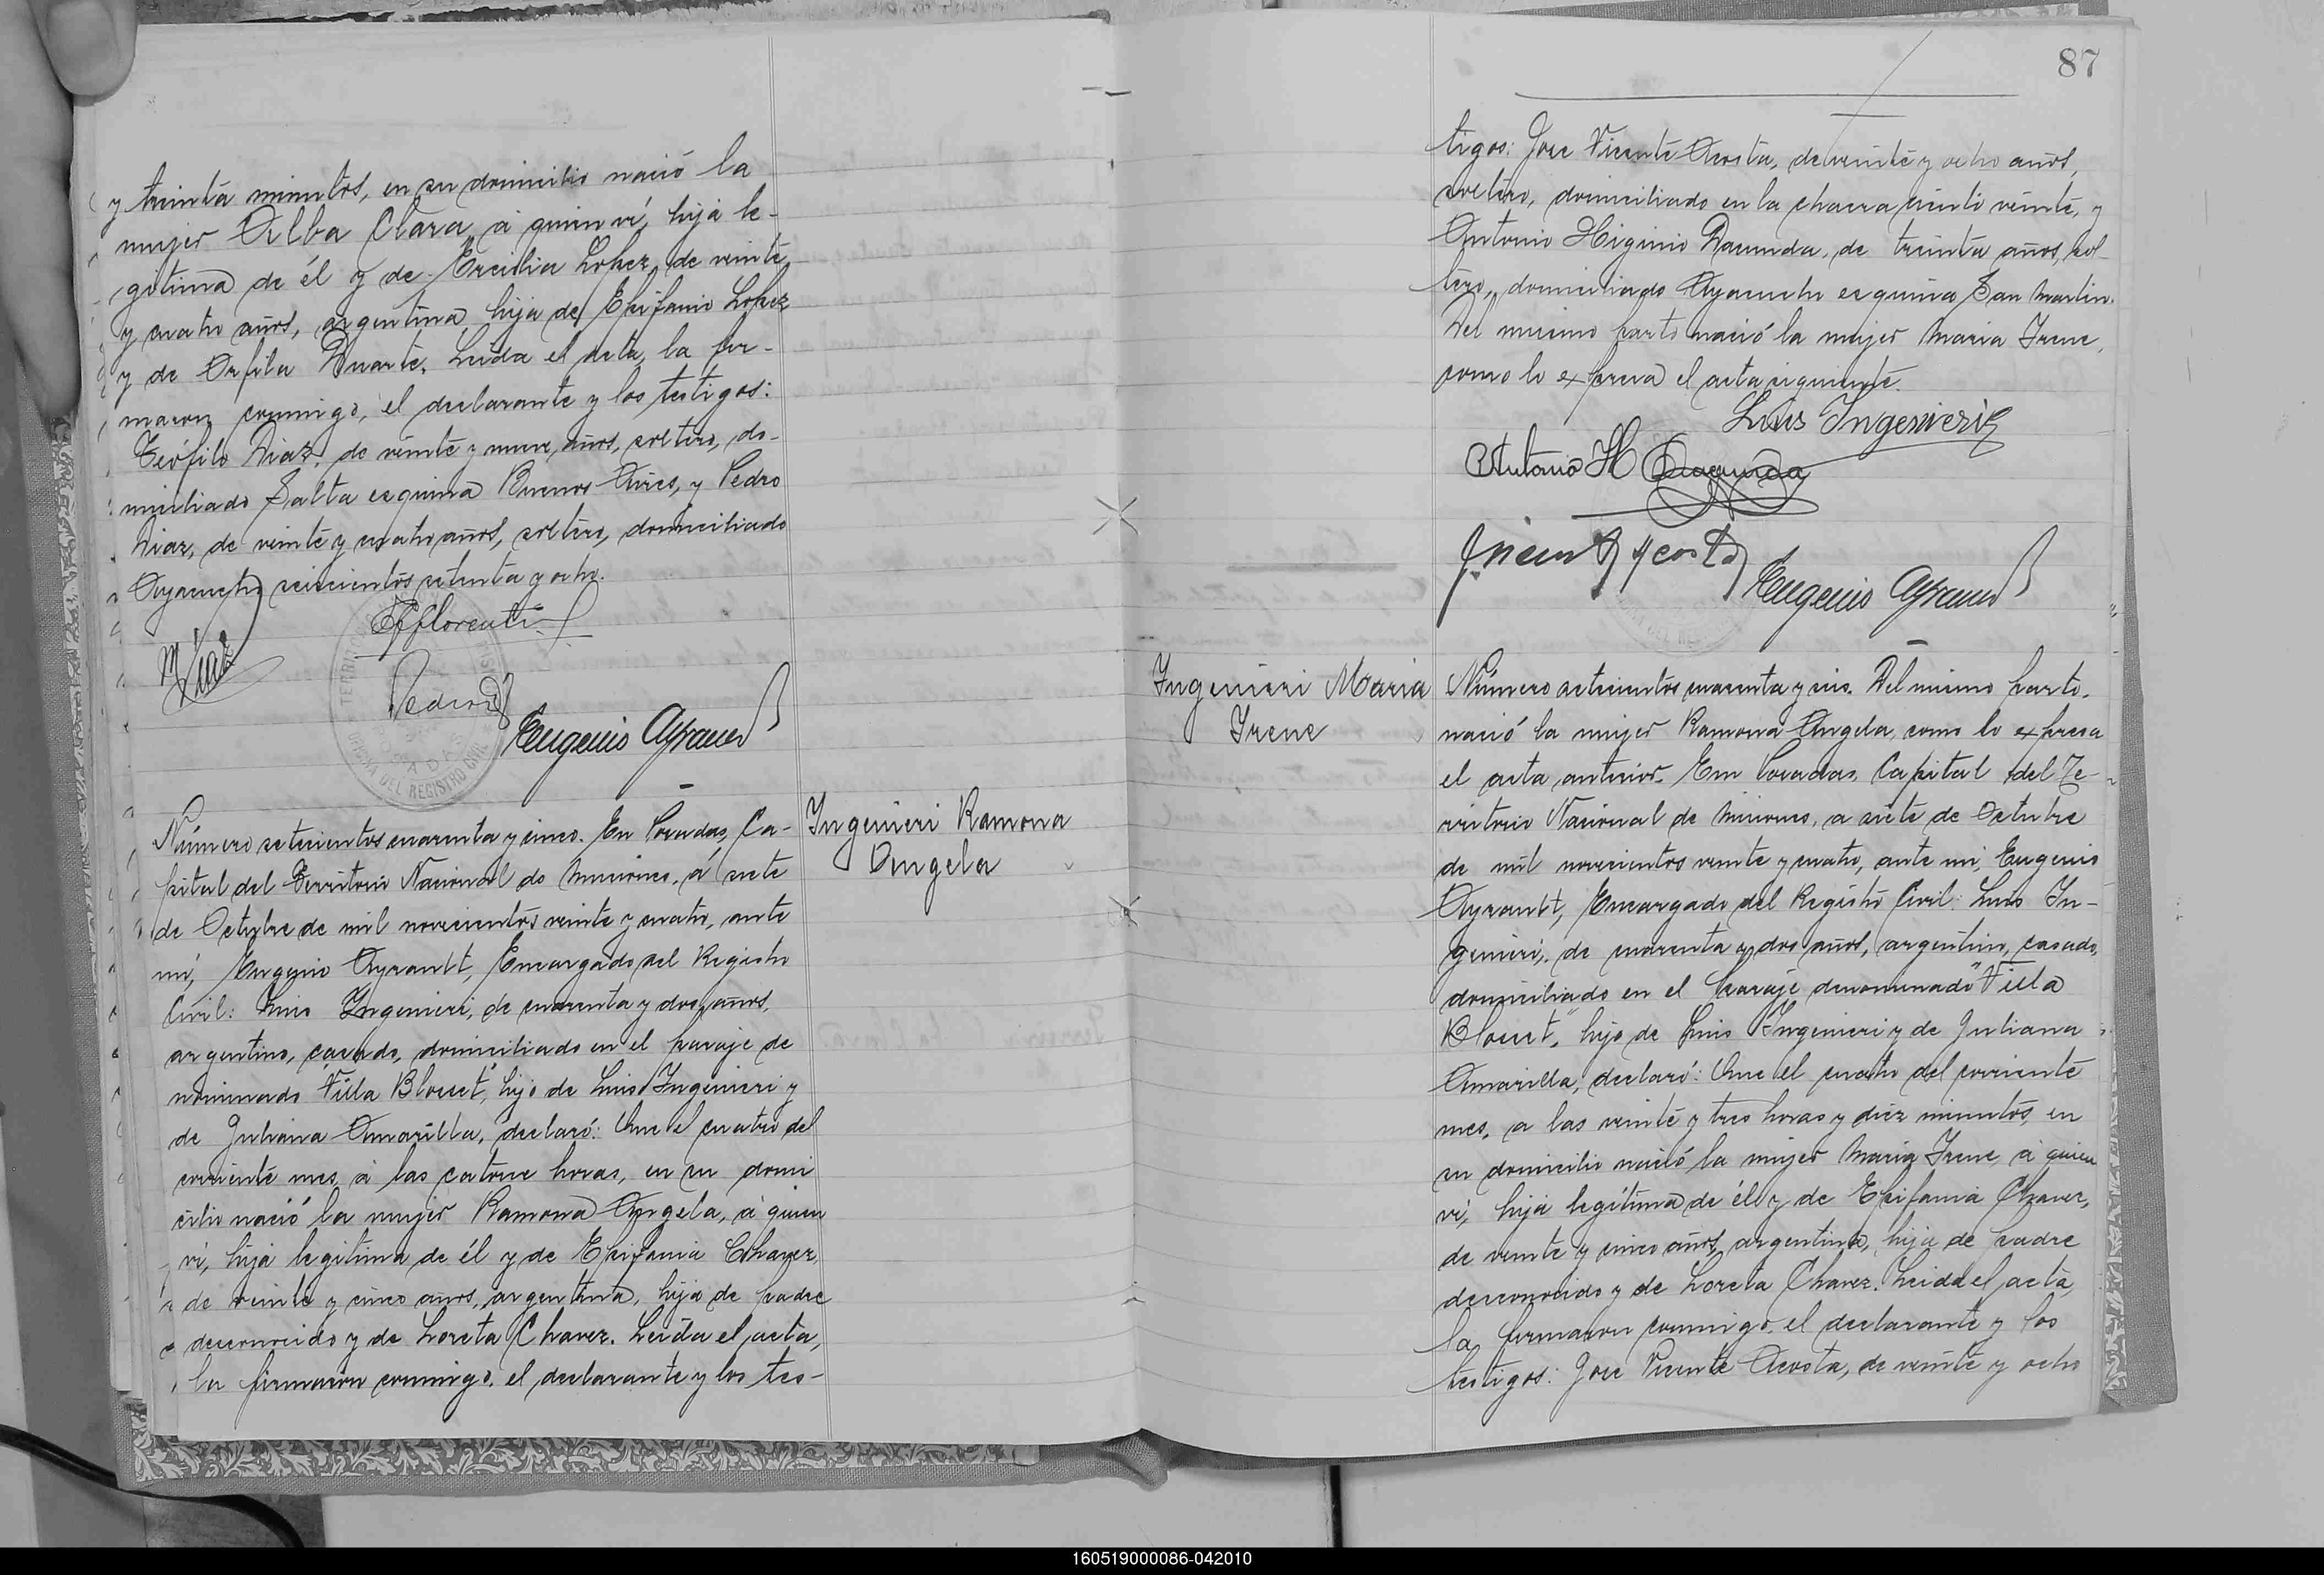 y treinta minutos, en su domicilio nació la
mujer Alba Clara, á quien ví, hija le-
gitima de él y de Ercilia Lopez, de veinte
y cuatro años, argentina, hija de Epifanio Lopez
y de Orfila Duarte. Leida el acta, la fir-
maron conmigo, el declarante y los testigos:
Teófilo Diaz, de veinte y nueve años, soltero, do-
miciliado Salta esquina Buenos Aires, y Pedro
Diaz, de veinte y cuatro años, soltero, domiciliado
Ayacucho seiscientos setenta y ocho.
Pedro
Eugenio Ayrault
OFICINA DEL REGISTRO CIVIL
POSADAS
Número setecientos cuarenta y cinco. En Posadas, Ca-
pital del Territorio Nacional de Misiones, á siete
de Octubre de mil novecientos veinte y cuatro, ante
mí, Eugenio Ayrault, Encargado del Registro
Civil: Luis Ingenieri, de cuarenta y dos años,
argentino, casado, domiciliado en el paraje de
nominado "Villa Blosset", hijo de Luis Ingenieri y
de Juliana Amarilla, declaró: Que el cuatro del
corriente mes, á las catorce horas, en su domi
cilio nació la mujer Ramona Angela, á quien
ví, hija legitima de él y de Epifania Chavez,
de veinte y cinco años, argentina, hija de padre
desconocido y de Loreta Chavez. Leida el acta,
la firmaron conmigo, el declarante y los tes-
Ingenieri Ramona
Angela
87
tigos: Jose Vicente Acosta, de veinte y ocho años,
soltero, domiciliado en la chacra ciento veinte, y
Antonio Higinio Dacunda, de treinta años, sol-
tero, domiciliado Ayacucho esquina San Martin.
Del mismo parto nació la mujer Maria Irene,
como lo expresa el acta siguiente.
Luis Ingenieri
Antonio H Dacunda
J. Vicente Acosta
Eugenio Ayrault
Ingenieri Maria
Irene
Número setecientos cuarenta y seis. Del mismo parto
nació la mujer Ramona Angela, como lo expresa
el acta anterior. En Posadas, Capital del Te-
rritorio Nacional de Misiones, a siete de Octubre
de mil novecientos veinte y cuatro, ante mi, Eugenio
Ayrault, Encargado del Registro Civil: Luis In-
genieri, de cuarenta y dos años, argentino, casado,
domiciliado en el paraje denominado "Villa
Blosset", hijo de Luis Ingenieri y de Juliana
Amarilla, declaró: Que el cuatro del corriente
mes, a las veinte y tres horas y diez minutos, en
su domicilio nació la mujer Maria Irene, á quien
ví, hija legítima de él y de Epifania Chavez,
de veinte y cinco años, argentina, hija de padre
desconocido y de Loreta Chavez. Leida el acta,
la firmaron conmigo, el declarante y los
testigos: Jose Vicente Acosta, de veinte y ocho
160519000086-042010